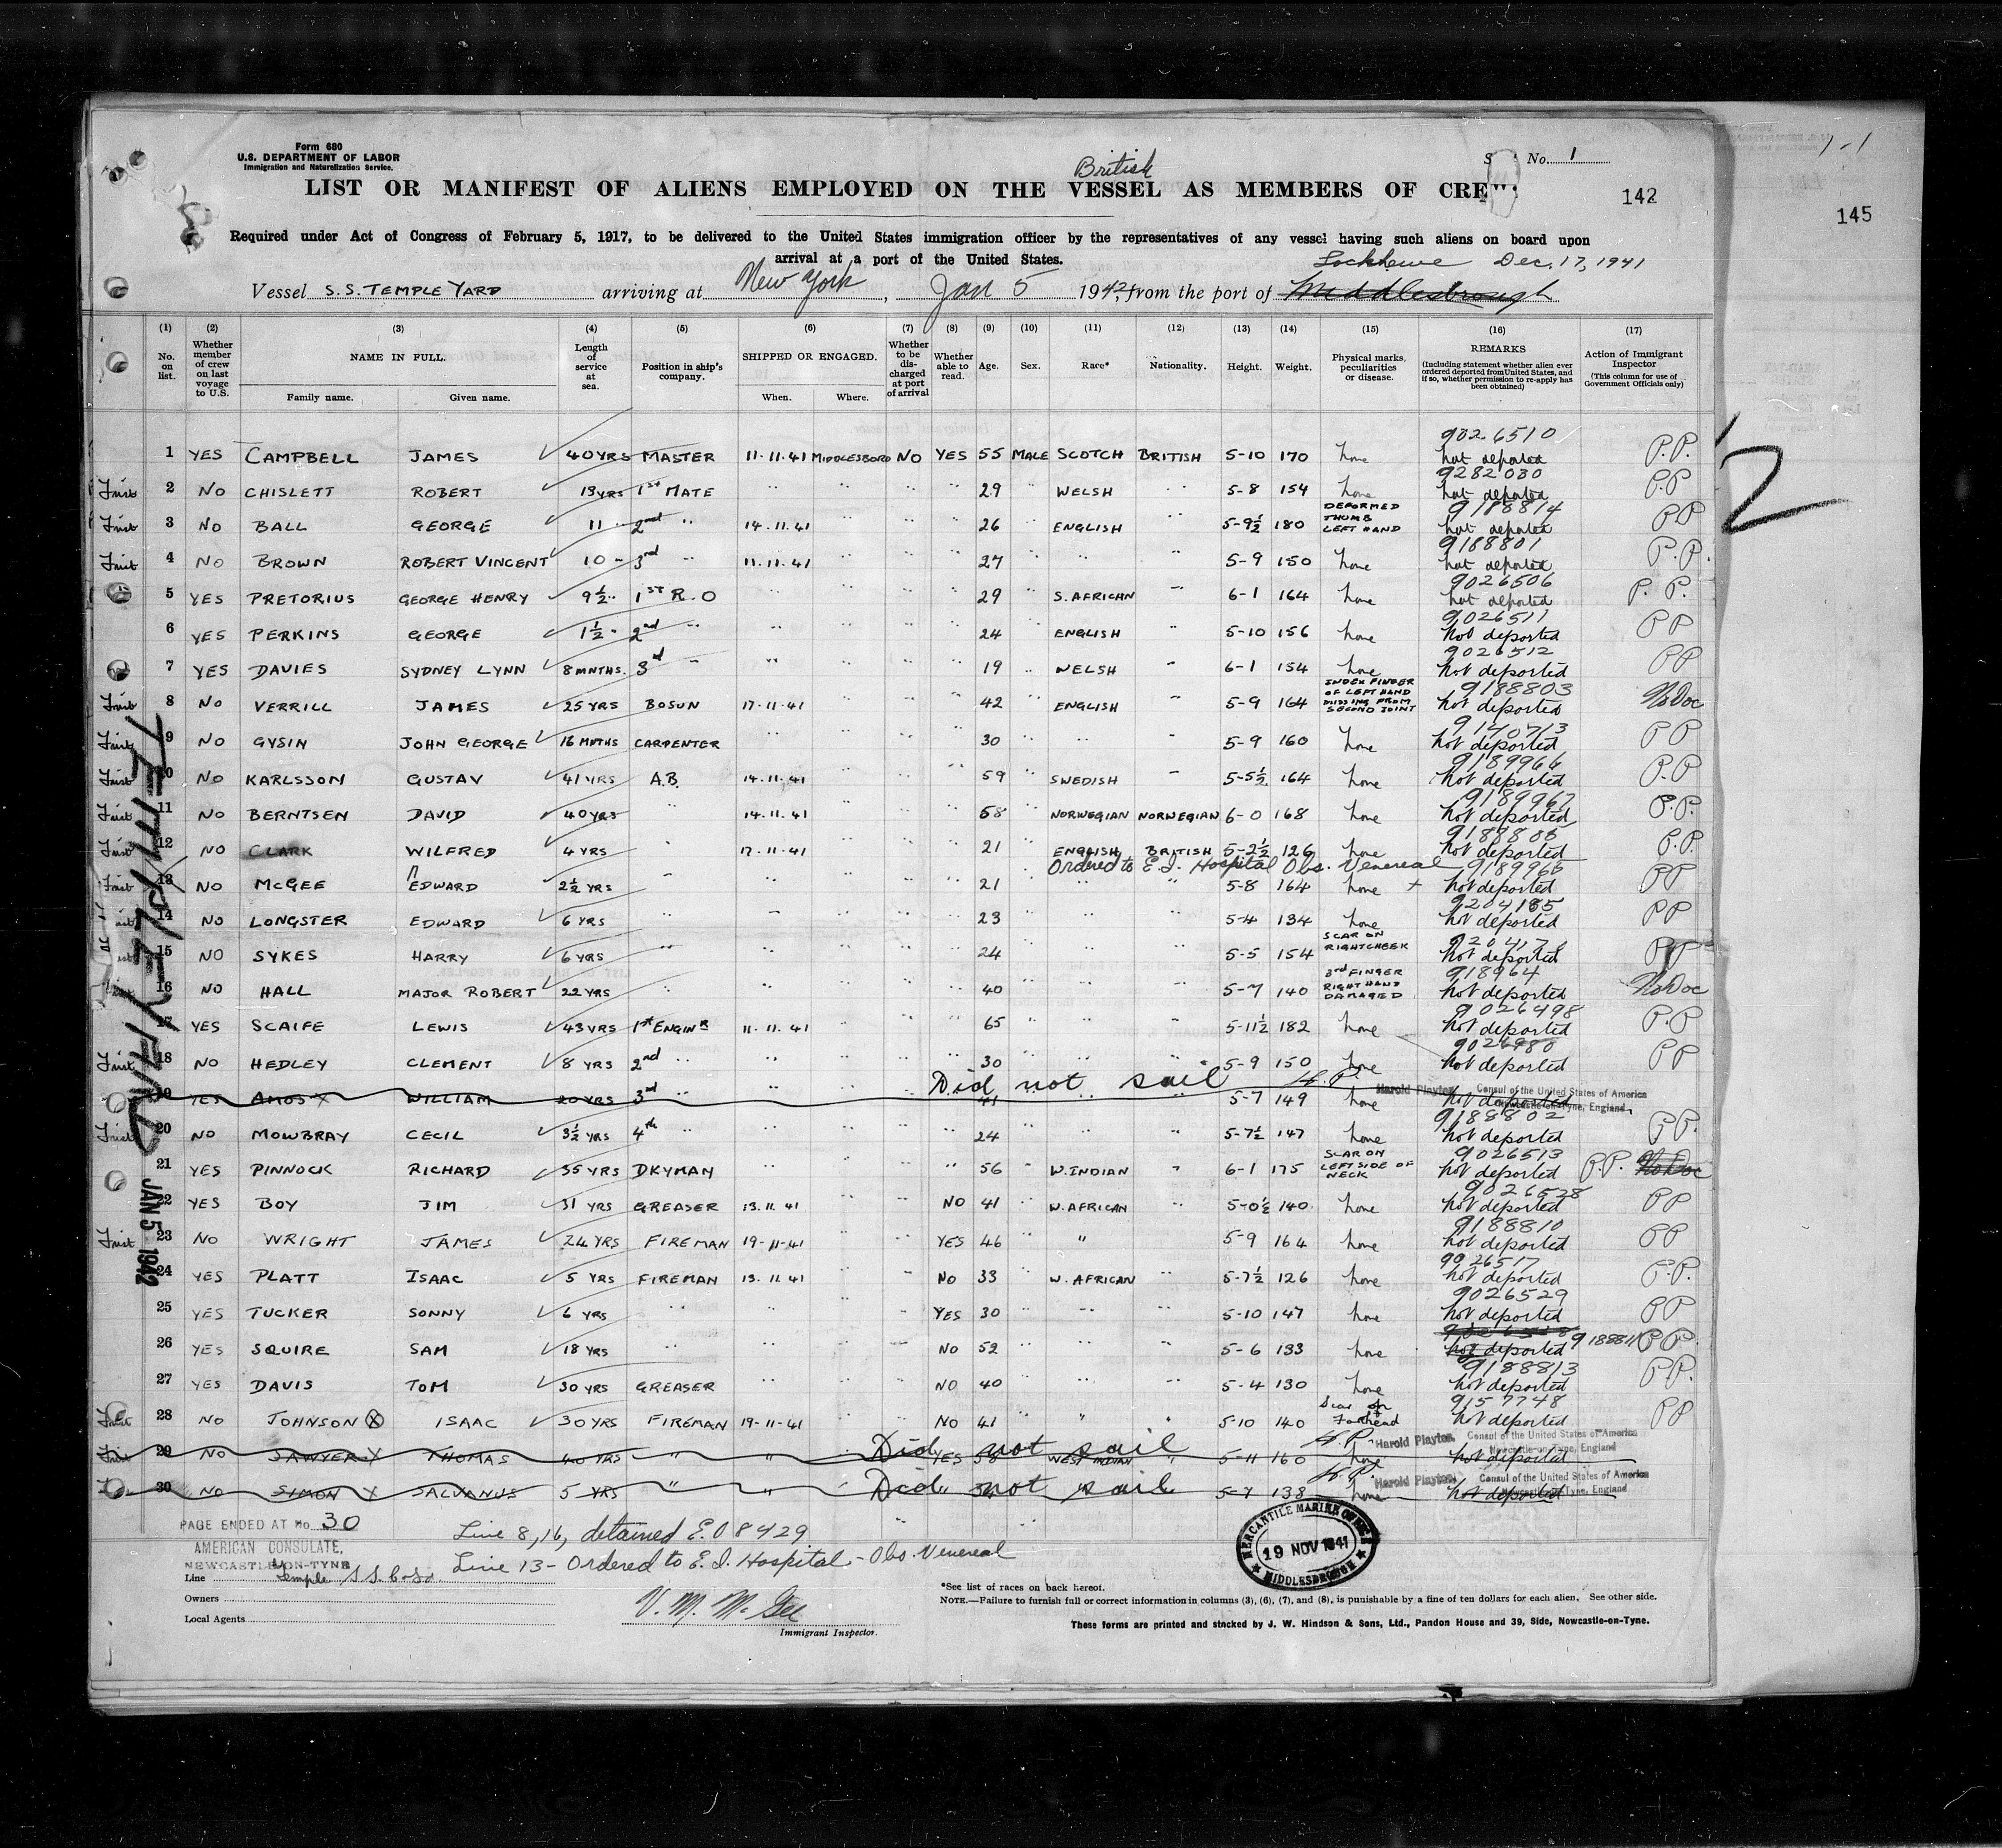 1-1
Form 680
U.S. DEPARTMENT OF LABOR
Immigration and Naturalization Service.
No. 1
British
LIST OR MANIFEST OF ALIENS EMPLOYED ON THE VESSEL AS MEMBERS OF CREW
142
145
Required under Act of Congress of February 5, 1917, to be delivered to the United States immigration officer by the representatives of any vessel having such aliens on board upon
arrival at a port of the United States.
Dec. 17, 1941
Vessel S.S. TEMPLE YARD arriving at New York, Jan 5 1942, from the port of Middlesbrough
(1) (2) (3) (4) (5) (6) (7) (8) (9) (10) (11) (12) (13) (14) (15) (16) (17)
No. on list. Whether member of crew on last voyage to U.S. NAME IN FULL. Family name. Given name. Length of service at sea. Position in ship's company. SHIPPED OR ENGAGED. When. Where. Whether to be discharged at port of arrival Whether able to read. Age. Sex. Race* Nationality. Height. Weight. Physical marks, peculiarities or disease. REMARKS (Including statement whether alien ever ordered deported from United States, and if so, whether permission to re-apply has been obtained) Action of Immigrant Inspector (This column for use of Government Officials only)
9026510
1 YES CAMPBELL JAMES 40 YRS MASTER 11.11.41 MIDDLESBORO NO YES 55 MALE SCOTCH BRITISH 5-10 170 none not deported P.P.
9282030
First 2 NO CHISLETT ROBERT 13 YRS 1st MATE " " " " 29 " WELSH " 5-8 154 none not deported P.P
DEFORMED THUMB LEFT HAND 9188814
First 3 NO BALL GEORGE 11 " 2nd " 14.11.41 " " " 26 " ENGLISH " 5-9½ 180 not deported PP
9188801
First 4 NO BROWN ROBERT VINCENT 10 " 3rd " 11.11.41 " " " 27 " " " 5-9 150 none not deported P.P.
9026506
5 YES PRETORIUS GEORGE HENRY 9½ " 1ST R.O " " " " 29 " S. AFRICAN " 6-1 164 none not deported P. P.
9026511
6 YES PERKINS GEORGE 1½ " 2nd " " " " " 24 " ENGLISH " 5-10 156 none not deported PP
9026512
7 YES DAVIES SYDNEY LYNN 8 MNTHS. 3rd " " " " " 19 " WELSH " 6-1 154 none not deported PP
INDEX FINGER OF LEFT HAND MISSING FROM SECOND JOINT 9188803
First 8 NO VERRILL JAMES 25 YRS BOSUN 17.11.41 " " " 42 " ENGLISH " 5-9 164 not deported No Doc
9140713
First 9 NO GYSIN JOHN GEORGE 16 MNTHS CARPENTER " " " " 30 " " " 5-9 160 none not deported PP
9189966
First 10 NO KARLSSON GUSTAV 41 YRS A.B. 14.11.41 " " " 59 " SWEDISH " 5-5½ 164 none not deported P.P
9189967
First 11 NO BERNTSEN DAVID 40 YRS " 14.11.41 " " " 58 " NORWEGIAN NORWEGIAN 6-0 168 none not deported P.P.
First 12 NO CLARK WILFRED 4 YRS " 17.11.41 " " " 21 " ENGLISH BRITISH 5-2½ 126 none not deported P.P.
Ordered to E.I. Hospital Obs. Venereal
First 13 NO McGEE EDWARD 2½ YRS " " " " " 21 " " " 5-8 164 none + not deported PP
9204185
14 NO LONGSTER EDWARD 6 YRS " " " " " 23 " " " 5-4 134 none not deported PP
SCAR ON RIGHT CHEEK
15 NO SYKES HARRY 6 YRS " " " " " 24 " " " 5-5 154 not deported PP
3rd FINGER RIGHT HAND DAMAGED 918964
16 NO HALL MAJOR ROBERT 22 YRS " " " " " 40 " " " 5-7 140 not deported No Doc
9026498
17 YES SCAIFE LEWIS 43 YRS 1st ENGINR 11.11.41 " " " 65 " " " 5-11½ 182 none not deported P.P
First 18 NO HEDLEY CLEMENT 8 YRS 2nd " " " " " 30 " " " 5-9 150 none not deported PP
Did not sail H.P. Harold Playter Consul of the United States of America Newcastle-on-Tyne, England.
19 YES AMOS X WILLIAM 20 YRS 3rd " " 41 5-7 149 none not deported
9188802
First 20 NO MOWBRAY CECIL 3½ YRS 4th " " " " " 24 " " " 5-7½ 147 none not deported P.P.
SCAR ON LEFT SIDE OF NECK 9026513
21 YES PINNOCK RICHARD 35 YRS DKYMAN " " " " 56 " W. INDIAN " 6-1 175 not deported P.P. No Doc
9026528
22 YES BOY JIM 31 YRS GREASER 13.11.41 " " NO 41 " W. AFRICAN " 5-0½ 140 none not deported PP
9188810
First 23 NO WRIGHT JAMES 24 YRS FIREMAN 19-11-41 " " YES 46 " " 5-9 164 none not deported PP
9026517
24 YES PLATT ISAAC 5 YRS FIREMAN 13.11.41 " " NO 33 " W. AFRICAN " 5-7½ 126 none not deported P.P.
9026529
25 YES TUCKER SONNY 6 YRS " " " " YES 30 " " " 5-10 147 none not deported PP
26 YES SQUIRE SAM 18 YRS " " " NO 52 " " " 5-6 133 none not deported 9188811 P.P.
9188813
27 YES DAVIS TOM 30 YRS GREASER " " " NO 40 " " " 5-4 130 none not deported P.P.
Scar on Forehead 9157748
First 28 NO JOHNSON X ISAAC 30 YRS FIREMAN 19-11-41 " " NO 41 " " " 5-10 140 not deported PP
Did not sail H.P. Harold Playter. Consul of the United States of America Newcastle-on-Tyne, England
29 NO SAWYER X THOMAS 40 YRS " " YES 58 WEST INDIAN " 5-11 160 none not deported
Did not sail H.P. Harold Playter. Consul of the United States of America Newcastle-on-Tyne, England
30 NO SIMON X SALVANUS 5 YRS " " " 5-7 138 none not deported
2
TEMPLE YARD
JAN 5 1942
PAGE ENDED AT No 30
AMERICAN CONSULATE,
NEWCASTLE-ON-TYNE
Line 8, 16, detained E.O 8429
Line 13 - Ordered to E.I. Hospital - Obs. Venereal
Line Temple S.S. Co Ld
Owners
Local Agents
V. M. McGee
Immigrant Inspector.
MERCANTILE MARINE OFFICE
19 NOV 1941
MIDDLESBROUGH
*See list of races on back hereof.
NOTE.—Failure to furnish full or correct information in columns (3), (6), (7), and (8), is punishable by a fine of ten dollars for each alien. See other side.
These forms are printed and stocked by J. W. Hindson & Sons, Ltd., Pandon House and 39, Side, Newcastle-on-Tyne.